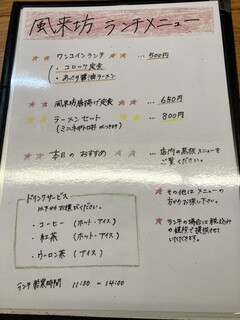 風来坊 ランチメニュー
☆☆ ワンコインランチ ☆☆ … 500円
・コロッケ定食
・あっさり醤油ラーメン
☆☆ 風来坊唐揚げ定食 ☆☆ … 650円
☆☆ ラーメンセート ☆☆ … 800円
(ミニネギトロ丼がつきます)
☆☆ 本日のおすすめ ☆☆ … 店内の黒板メニューを
ご覧ください。
ドリンクサービス
以下からお選びください。
・コーヒー (ホット・アイス)
・紅茶 (ホット・アイス)
・ウーロン茶 (アイス)
☆ その他はメニューの
方からお探し下さい。
☆ ランチの場合は税込み
の値段で提供させて
いただきます。
ランチ営業時間 11:30 ~ 14:00